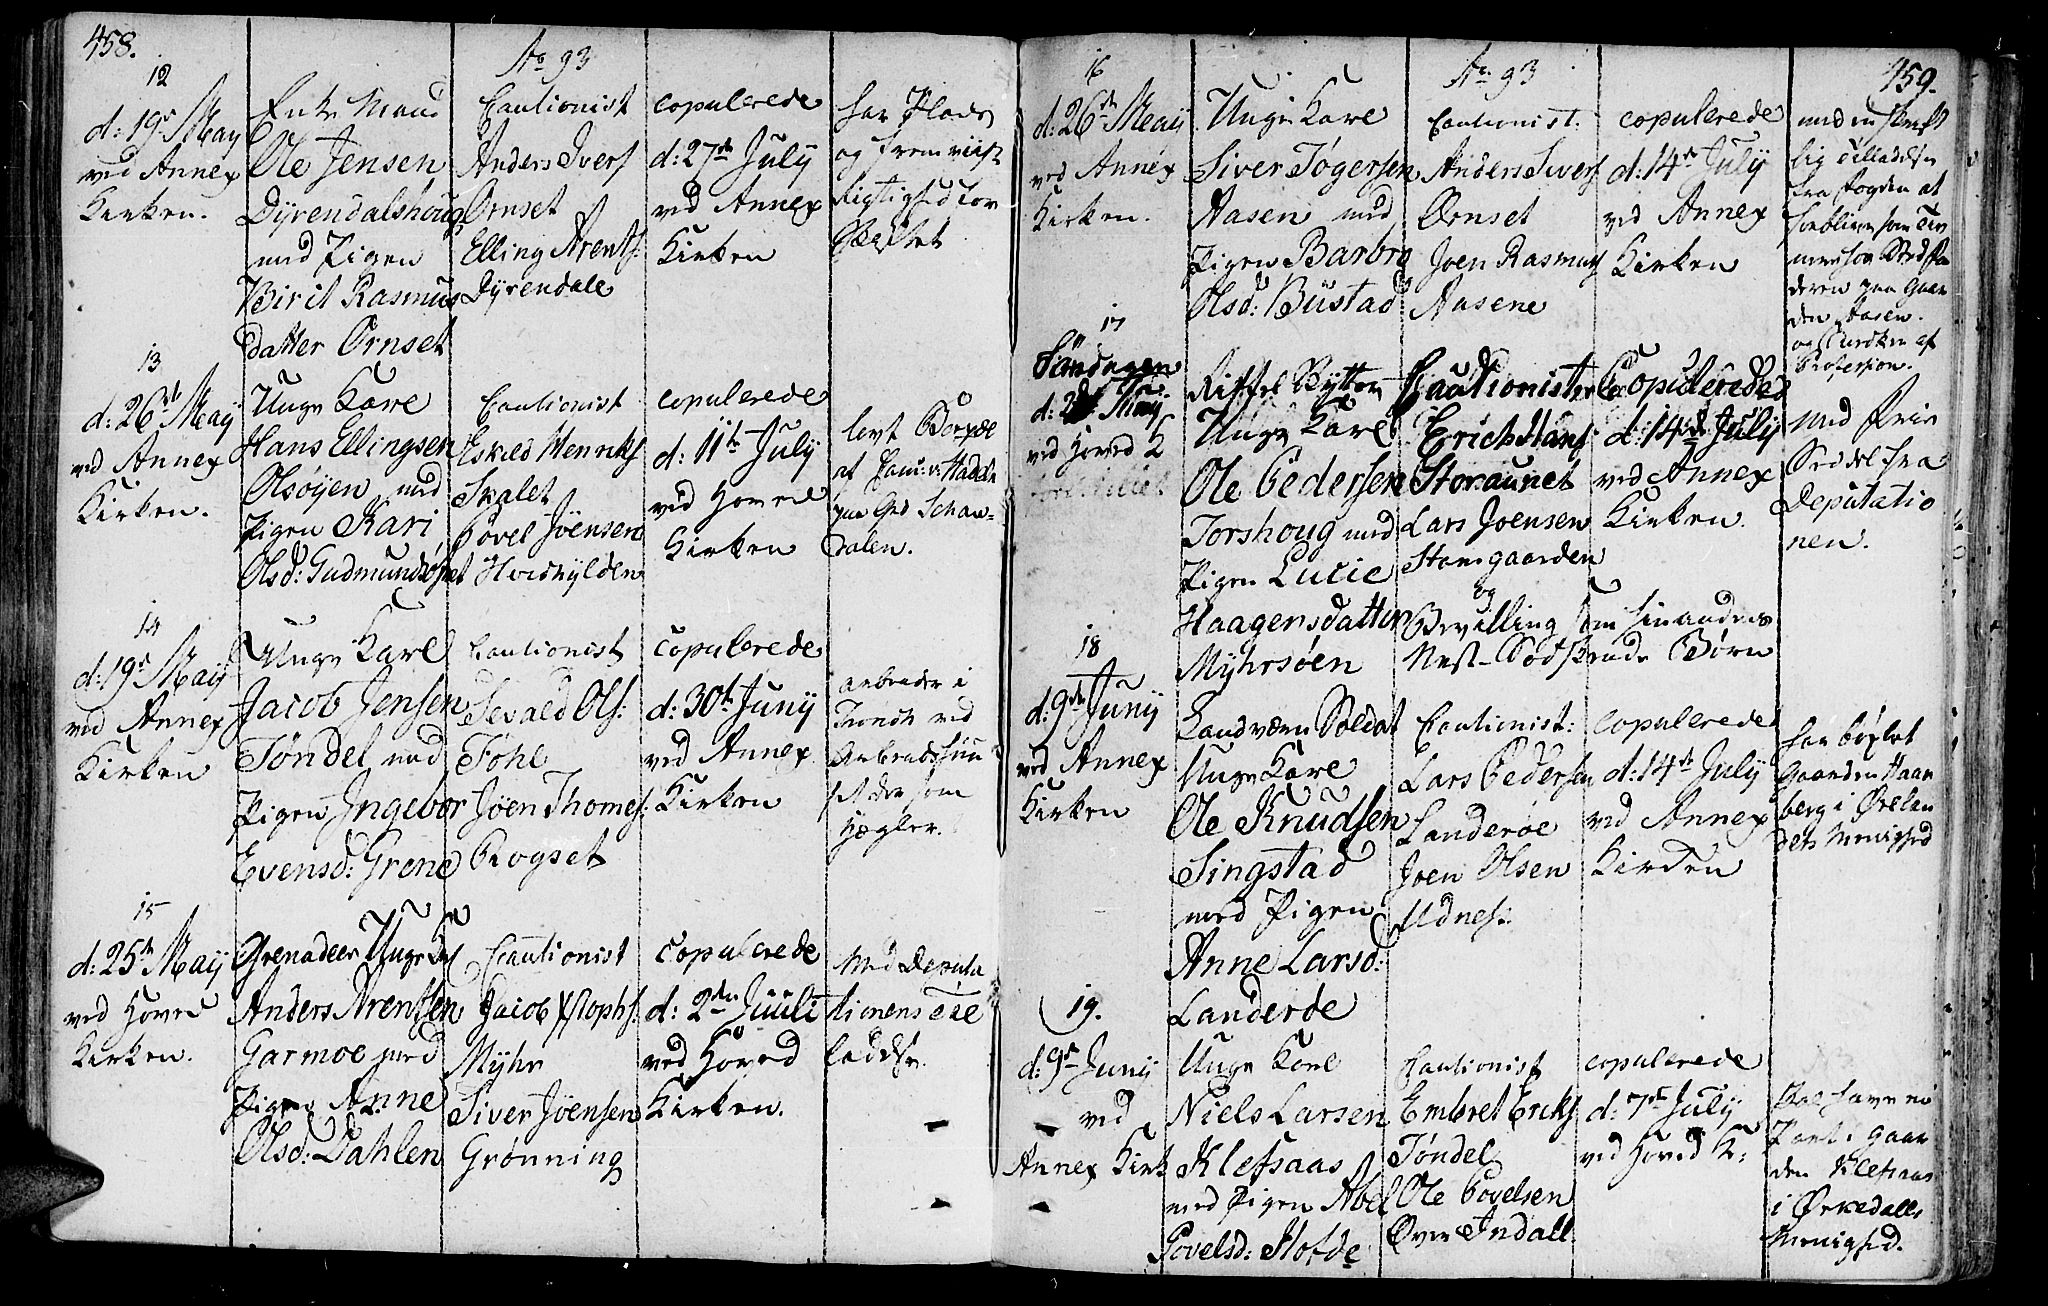 458.
Ao 93
12
d: 19de Maij
ved Annex
Kirken.
Enke Mand
Ole Jensen
Dyrendalshoug
med Pigen
Birit Rasmus
datter Ørnset
Cautionist
Anders Ivers
Ørnset
Elling Arents:
Dyrendale
copulerede
d: 27de Julÿ
ved Annex
Kirken
har Plads
og fremviist
Rigtighed for
13
d: 26de Maij
ved Annex
Kirken.
Unge Karl
Hans Ellingsen
Olsøyen med
Pigen Kari
Olsd: Gudmundsøset
Cautionist
Eskild Henriks
Skalet
Povel Jöensen
Hvidhylden
copulerede
d: 11te July
ved Hoved
Kirken
14
d: 19de Maij
ved Annex
Kirken
Unge Karl
Jacob Jensen
Töndel med
Pigen Ingebor
Evensd: Grene
Cautionist
Sevald Ols:
Föhl
Jöen Thomes:
Rogset
copulerede
d: 30te Junij
ved Annex
Kirken
arbeider i
ved
som
Hegler.
15
d: 25de Maij
ved Hoved
Kirken.
Grenadeer Unge Karl
Anders Arentsen
Garmoe med
Pigen Anne
Olsd: Dahlen
Cautionist
Jacob Xstophs:
Myhr
Siver Jöensen
Grönning
copulerede
d: 2den Juuli
ved Hoved
Kirken.
Med Deputa
tionens Til
ladelse.
459.
Ao 93
16
d: 26de Maij
ved Annex
Kirken.
Unge Karl
Siver Tøgersen
Aasen med
Pigen Barbro
Olsd: Büstad
Cautionist:
Anders Ivers
Ørnset
Joen Rasmus
Aasene
copulerede
d: 14de Julÿ
ved Annex
Kirken
med en skrift
lig Tilladelse
fra Fogden at
forblive som Töm
mer hos Stedfa
deren paa Gaar
den Aasen.
og Snedker af
Profession.
17
Söndagen
ved Hoved K
Riffel Rytter
Unge Karl
Ole Pedersen
Torshoug med
Pigen Lucie
Haagensdatter
Myhrsøen
Cautionister
Erich Hans
Storaunet
Lars Joensen
Stamgaarden
og
Bevilling som hinandens
Nest-Södskende Børn
Copulerede
d: 14de July
ved Annex
Kirken.
Med Frie
Sedel fra
Deputatio
nen.
18
d: 9de Junij
ved Annex
Kirken
Landværn Soldat
Unge Karl
Ole Knudsen
Singstad
med Pigen
Anne Larsd:
Landeröe
Cautionist:
Lars Pedersen
Landeröe
Joen Olsen
Udness
copulerede
d: 14de July
ved Annex
Kirken
har böxlet
Gaarden Haar
berg i Ørelan
dets Menighed
19.
d: 9de Junij
ved
Annex Kirk
Unge Karl
Niels Larsen
Klefsaas
med Pigen Abel
Povelsd: Hofde
Cautionist
Embret Ericks
Töndel
Ole Povelsen
Øvre Indall
copulerede
d: 7de July
ved Hoved K:
skal have en
Part i Gaar
den Klefsaas
i Ørkedals
Menighed.